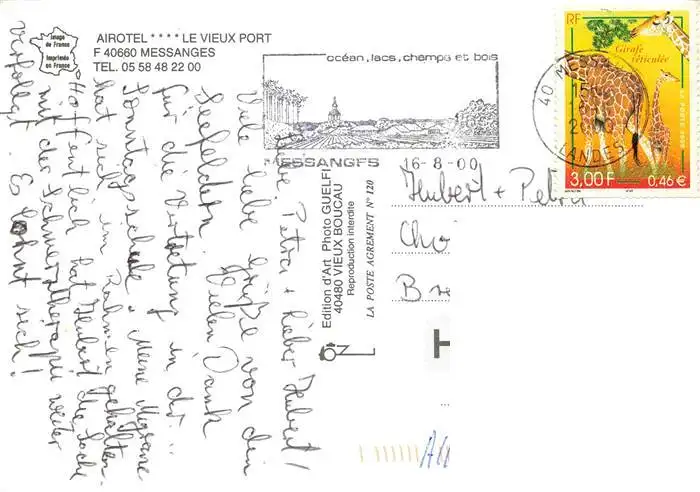 Image
de France
Imprimée
en France
AIROTEL **** LE VIEUX PORT
F 40660 MESSANGES
TEL. 05 58 48 22 00
océan, lacs, champs et bois
MESSANGES 16-8-00
RF
Girafe
réticulée
LA POSTE 2000
3,00 F
0,46 €
40
LANDES
Liebe Petra + lieber Hubert!
Viele liebe Grüße von den
Seefeldern. Vielen Dank
für die Vertretung in der
Sonntagsschule. Meine Migräne
hat sich im Rahmen gehalten.
Hoffentlich hat Hubert die Sache
mit der Schmerztherapie weiter
verfolgt. Es lohnt sich!
Edition d'Art Photo GUELFI
40480 VIEUX BOUCAU
Reproduction interdite
LA POSTE AGREMENT N° 120
Hubert + Petra